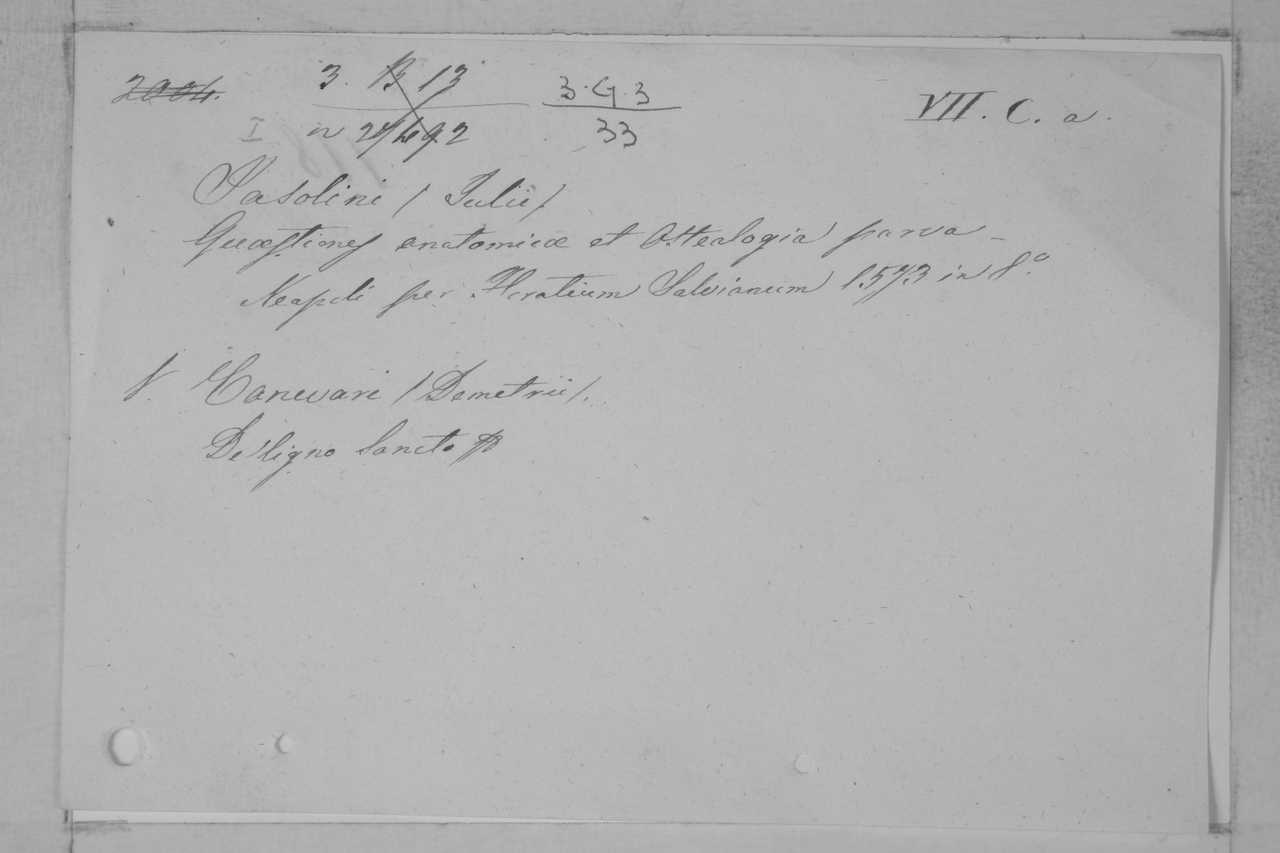 2004.
3. B 13
3. G. 3
VII. C. a.
I
33
Jasolini / Julii /
Quæstiones anatomicæ et Ostealogia parva -
Neapoli per Horatium Salvianum 1573 in 8.º
V. Canevari / Demetrii /.
De ligno Sancto